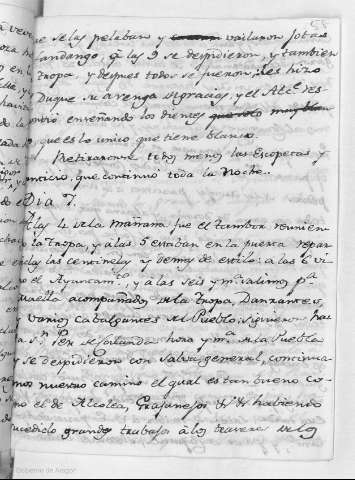 que selas pelaban y bailaron Jotas
fandango, q.e a las 9 se despidieron, y tambien
tropa, y despues todos se fueron, les hizo
Duque su arenga de gracias, y el Alc.e res-
pondió enseñando los dientes
que es lo unico que tiene blanco.
Retiraronse todos menos las Escopetas y
que continuó toda la noche.
Dia 7.
A las 4 de la mañana fue el tambor reunien
la tropa, y a las 5 estaban en la puerta repar
las centinelas y demas de estilo: a las 6 vi
no el Ayuntam.to, y a las seis y m.a salimos p.a
acompañados de la tropa, Danzantes,
y varios cabalgantes del Pueblo; siguieron has
hora y m.a de la Puebla
y se despidieron con Salva general, continua
mos nuestro camino el qual es tan bueno co
mo el de Alcolea, Grajanejos &c &c habiendo
sucedido grandes trabajos a los traveses de los
Gobierno de Aragón